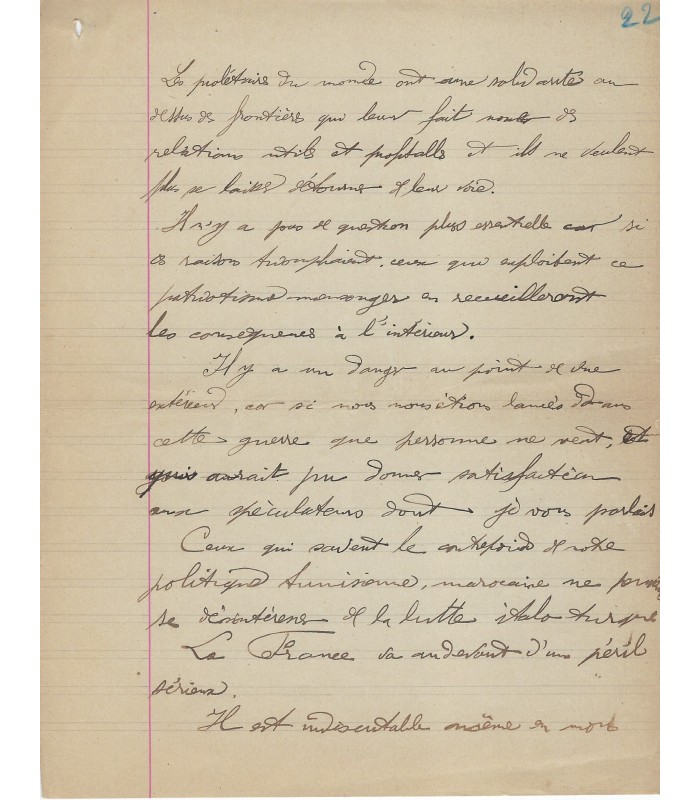 22
Les prolétaires du monde ont une solidarité au
dessus des frontières qui leur fait nouer des
relations utiles et profitables et ils ne veulent
plus se laisser détourner de leur voie.
Il n'y a pas de question plus essentielle car si
ces raisons triomphaient, ceux qui exploitent ce
patriotisme mensonger en recueilleront
les conséquences à l'intérieur.
Il y a un danger au point de vue
extérieur, car si nous nous étions lancés dans
cette guerre que personne ne veut,
aurait pu donner satisfaction
aux spéculateurs dont je vous parlais
Ceux qui savent le contrepoids de notre
politique tunisienne, marocaine ne
se désintéresser de la lutte italo turque
La France va au devant d'un péril
sérieux.
Il est indiscutable en